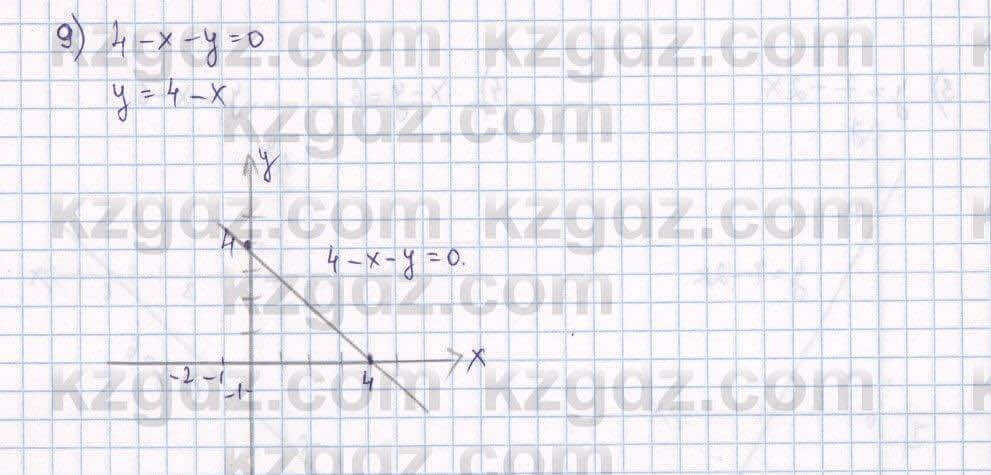 9) 4 - x - y = 0
y = 4 - x
kzgdz.com kzgdz.com
kzgdz.com
y
kzgdz.com kzgdz.com
4
4 - x - y = 0.
kzgdz.com
x
-2 -1 4
-1
kzgdz.com kzgdz.com
kzgdz.com